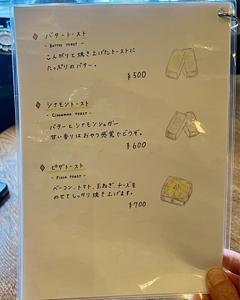 バタートースト
- Butter toast -
こんがりと焼き上げたトーストに
たっぷりのバター。
¥500
シナモントースト
- Cinnamon toast -
バターとシナモンシュガー
甘い香りはおやつ感覚でどうぞ。
¥600
ピザトースト
- Pizza toast -
ベーコン、トマト、玉ねぎ、チーズを
のせてしっかり焼き上げます。
¥700